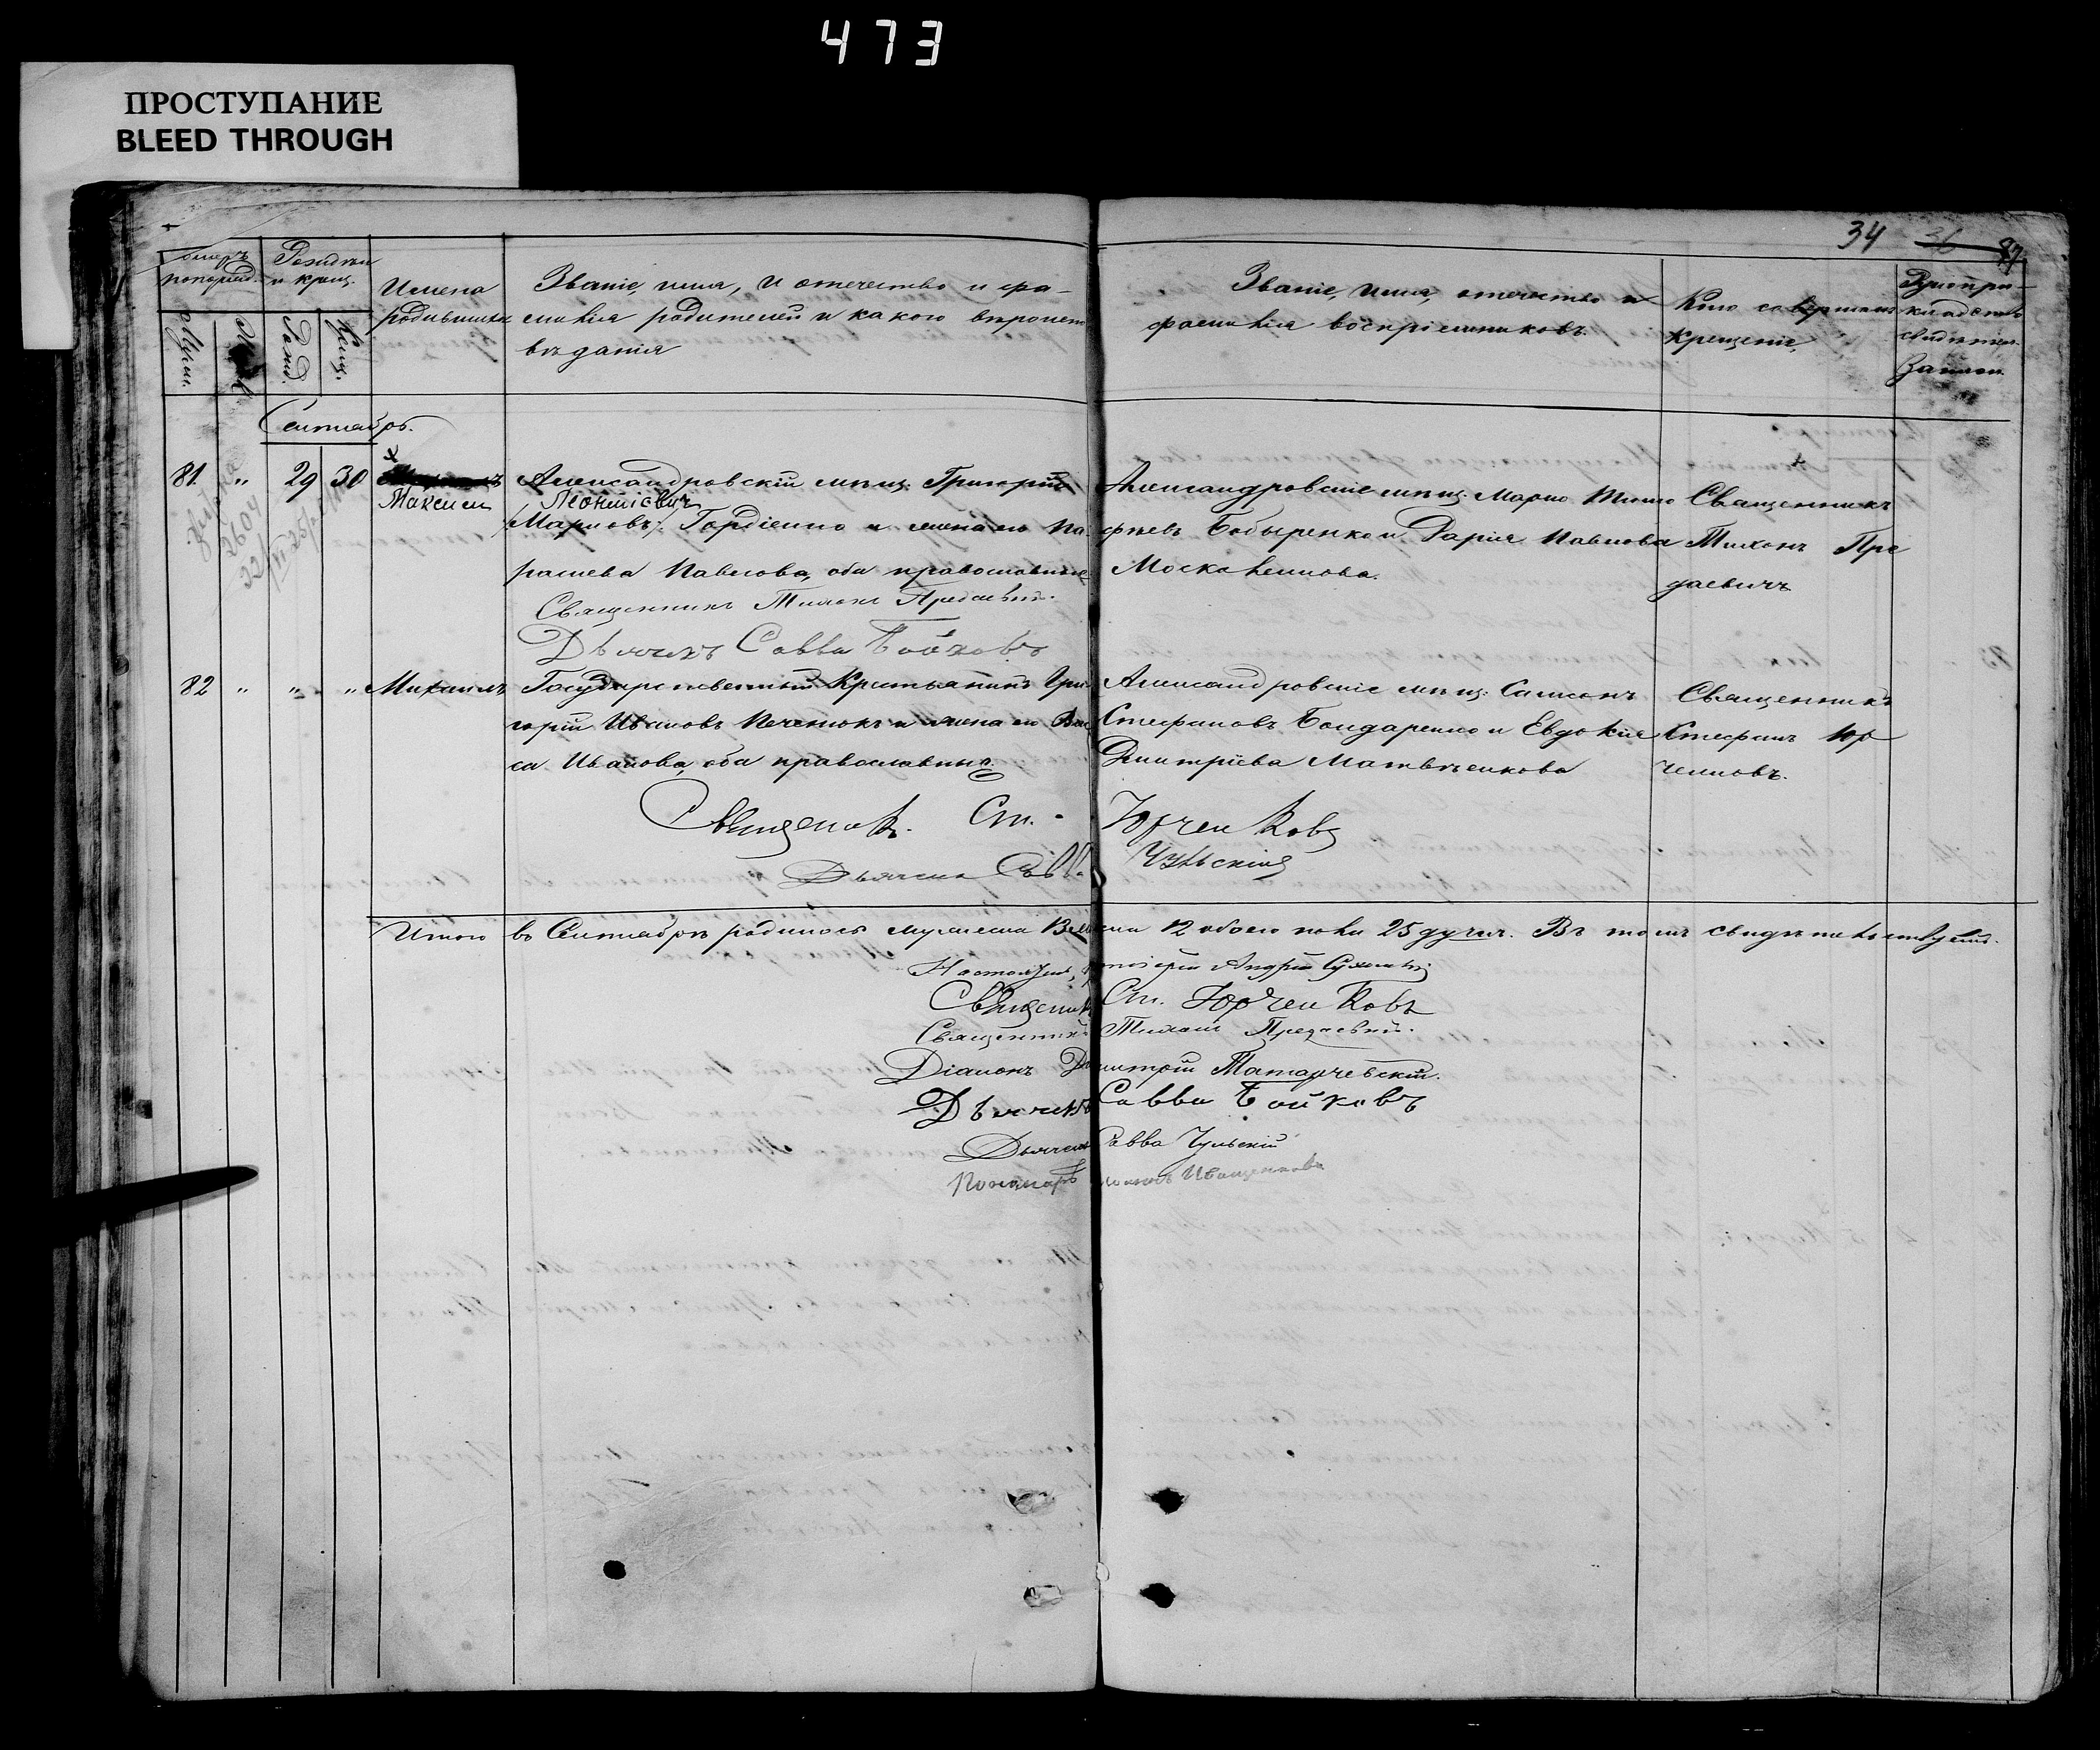 473
ПРОСТУПАНИЕ
BLEED THROUGH
34 36 87
Имена родившихся
Званіе, имя, и отечество и фа-
милія родителей и какого вѣроиспо
вѣданія
Званіе, имя, отечество и
фамилія воспріемниковъ.
Кто совершалъ
крещеніе,
Мужес.
Рожд.
Крещ.
Сентябрь.
81. " 29 30 Максим
Александровскій мѣщ. Григорій
Леонтіевич
(Марковъ) Гордіенко и жена его Па
раскева Павлова, оба православные
Священникъ Тихонъ Предаевичъ.
Дьячекъ Савва Бойковъ
Александровскіе мѣщ. Марко Тимо
фѣевъ Бобыренко и Дарія Павлова
Москаленкова.
Священникъ
Тихонъ Пре
даевичъ
82 " " " Михаилъ
Государственный Крестьянинъ Гри
горій Ивановъ Печенюкъ и жена его Вас
са Иванова, оба православные.
Александровскіе мѣщ. Самсонъ
Стефановъ Бондаренко и Евдокія
Дмитріева Матвѣенкова
Священникъ
Стефанъ Юр
ченковъ.
Священникъ. Ст. Юрченковъ
Дьячекъ Савва Чульскій
Итого въ Сентябрѣ родилось мужеска 13 женска 12 обоего пола 25 душъ. Въ томъ свидѣтельствуемъ.
Настоятель, протоіерей Андрей
Священникъ Ст. Юрченковъ
Священникъ Тихонъ Предаевичъ.
Діаконъ Димитрій Татарчевскій.
Дьячекъ Савва Бойковъ
Дьячекъ Савва Чульскій
Пономарь Иващенковъ